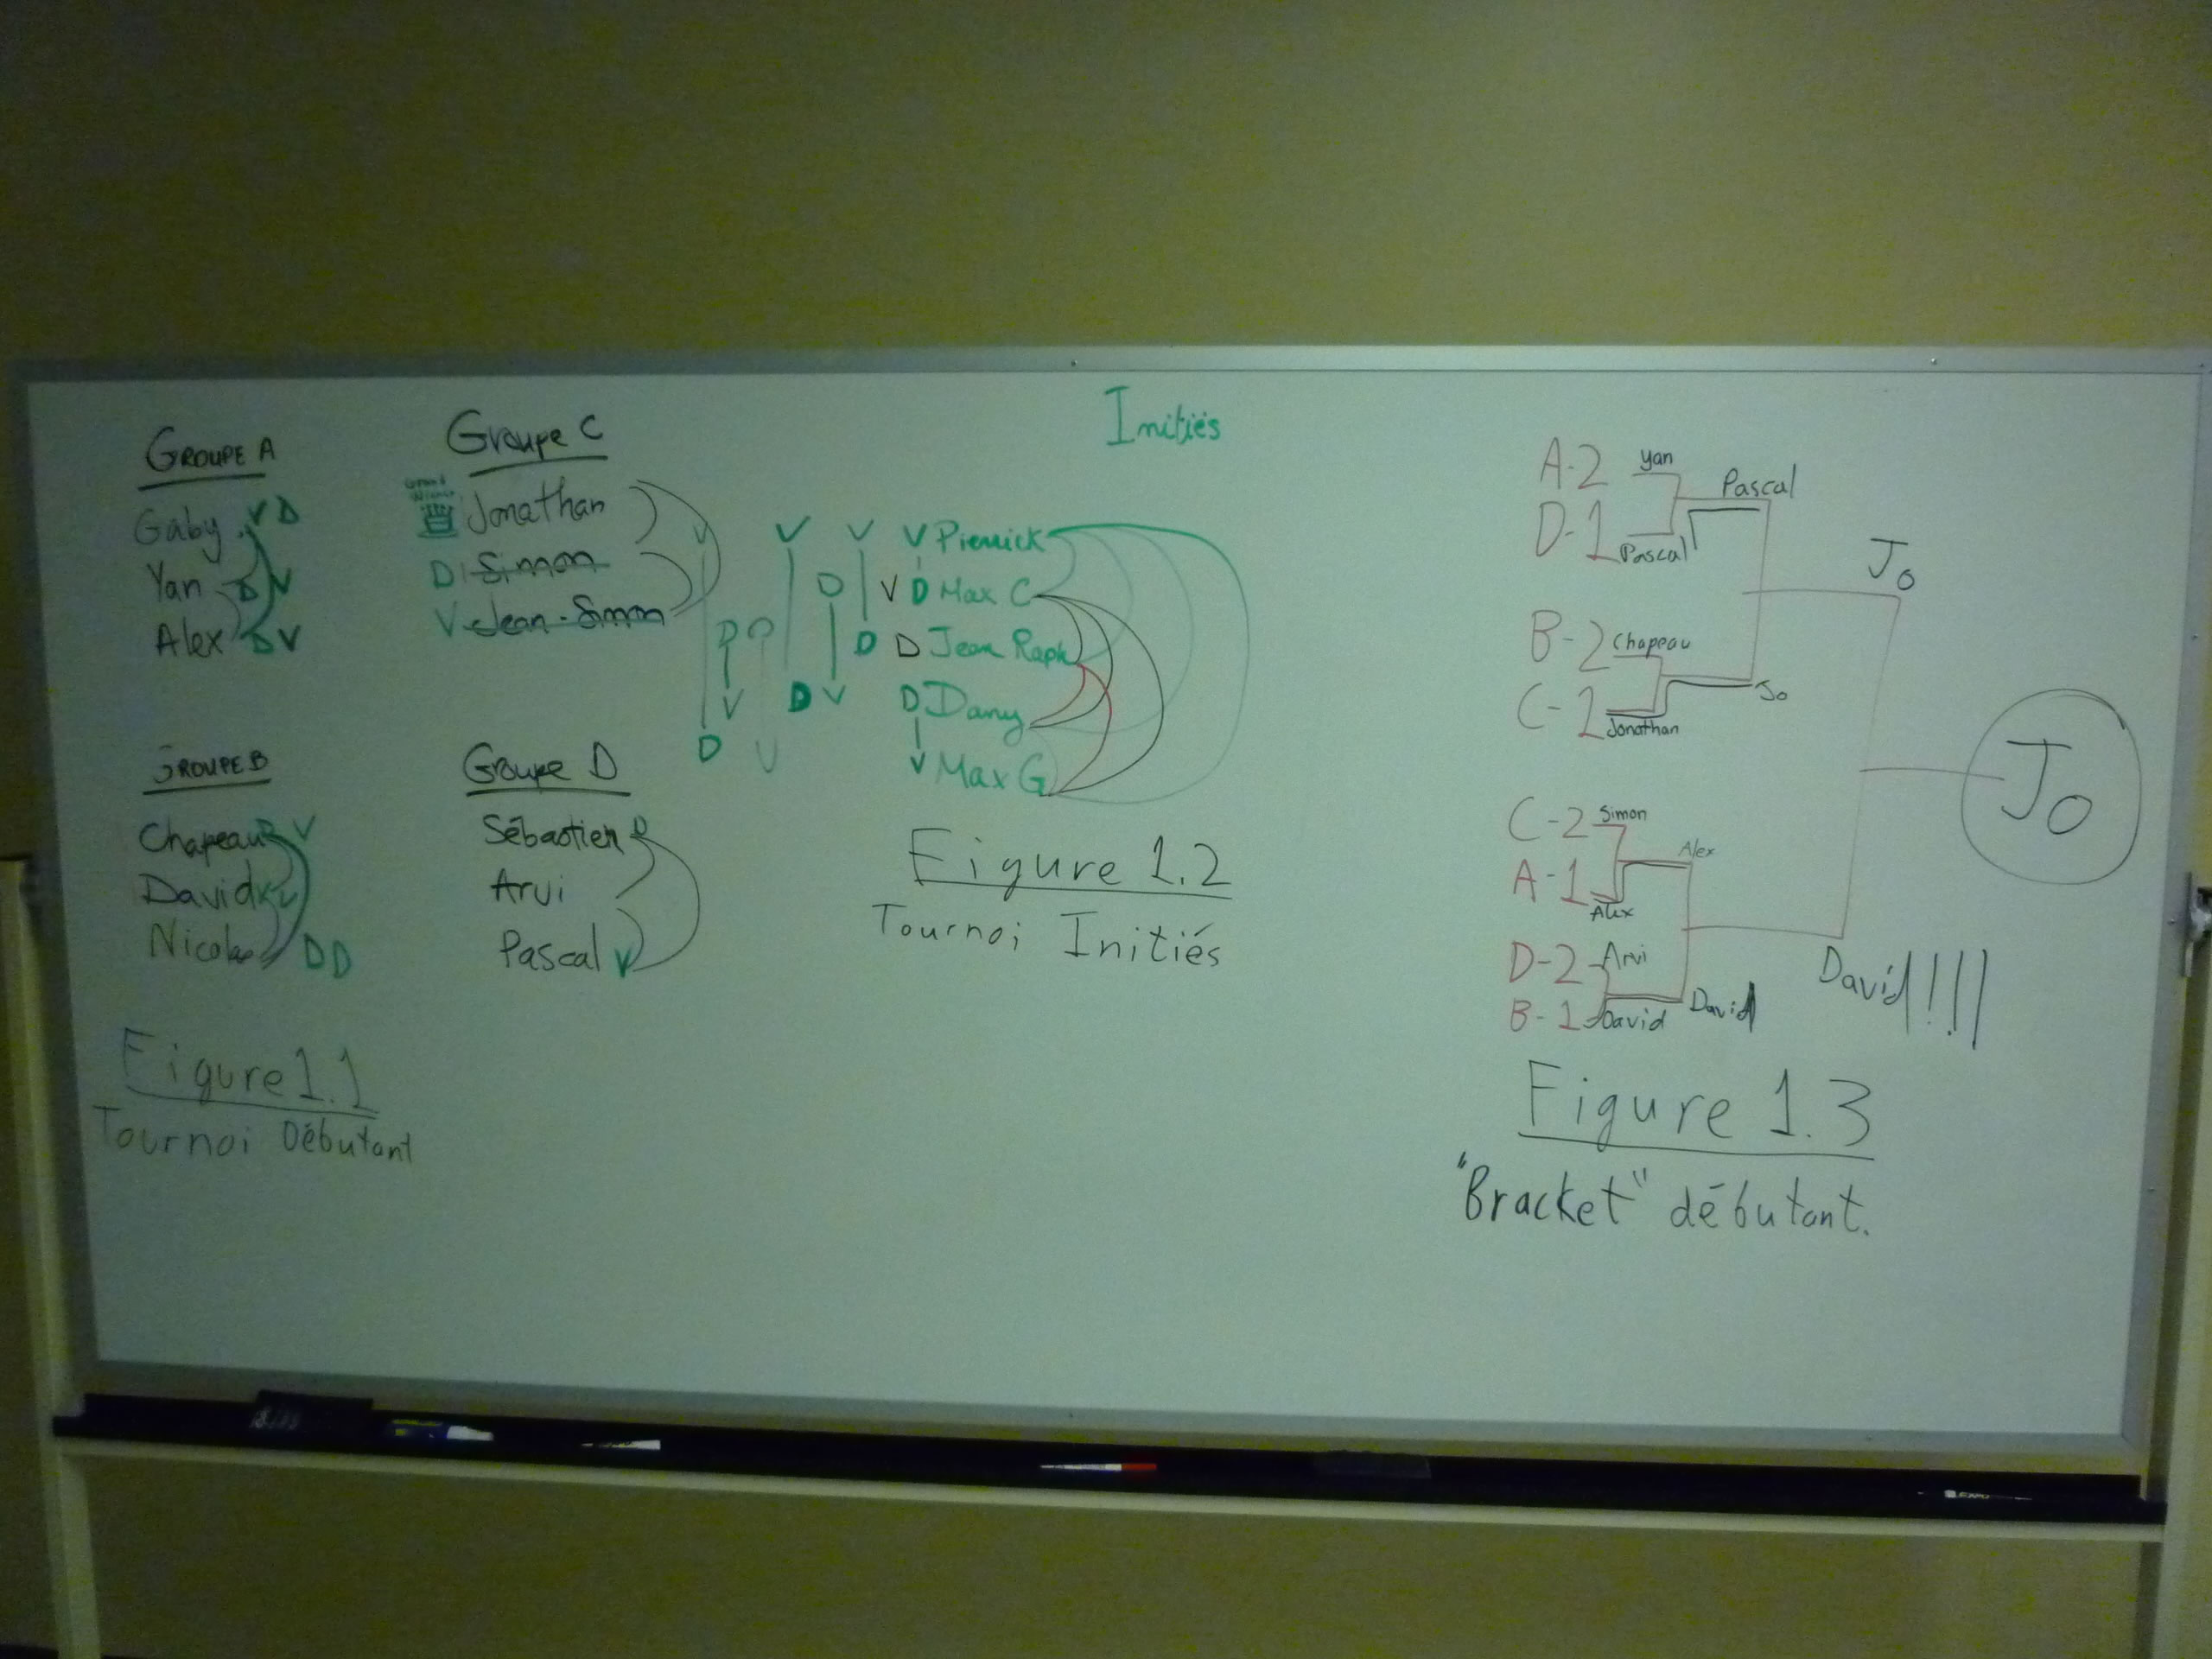 GROUPE A
Gaby V D
Yan D V
Alex D V
Groupe C
Jonathan
D Simon
V Jean-Simon
GROUPE B
Chapeau D V
David V V
Nicolas D D
Groupe D
Sébastien D
Arvi
Pascal V
Figure 1.1
Tournoi Débutant
Initiés
V V V V Pierrick
D V D Max C
D D D D Jean Raph
V D V D Dany
D V V Max G
Figure 1.2
Tournoi Initiés
A-2 Yan
Pascal
D-1 Pascal
Jo
B-2 Chapeau
Jo
C-1 Jonathan
Jo
C-2 Simon
Alex
A-1 Alex
D-2 Arvi
David!!!
David
B-1 David
Figure 1.3
"Bracket" débutant.